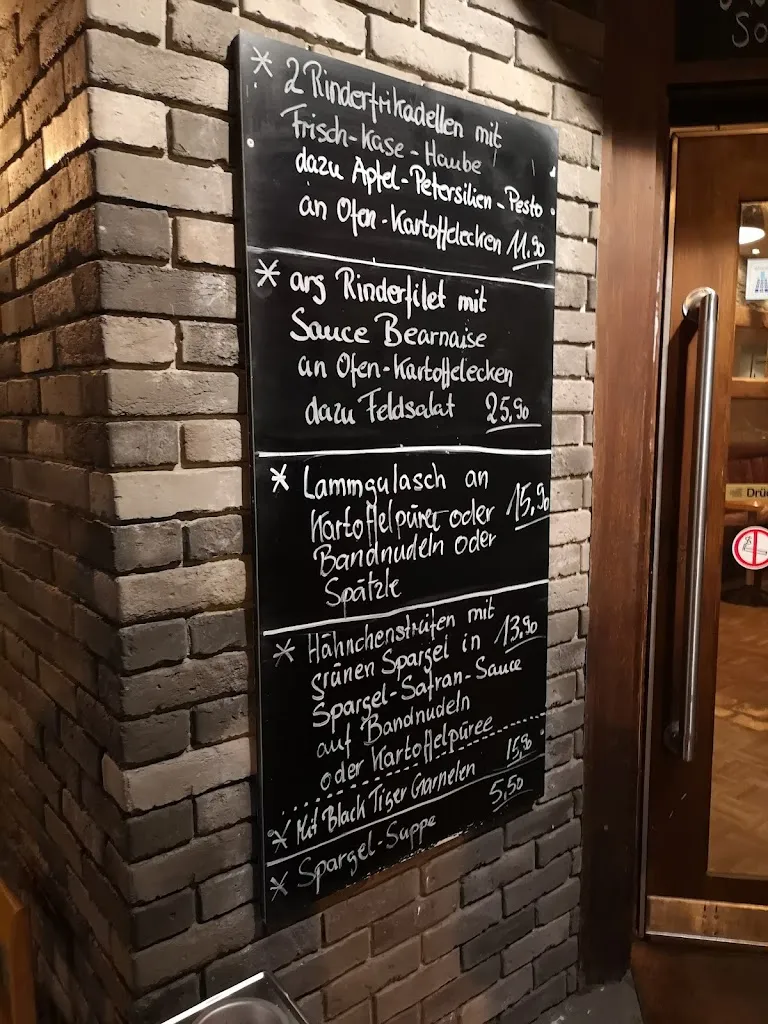 * 2 Rinderfrikadellen mit
Frisch-Käse-Haube
dazu Apfel-Petersilien-Pesto
an Ofen-Kartoffelecken 11.90
* arg Rinderfilet mit
Sauce Bearnaise
an Ofen-Kartoffelecken
dazu Feldsalat 25,90
* Lammgulasch an
Kartoffelpüree oder 15,90
Bandnudeln oder
Spätzle
* Hähnchenstreifen mit
grünen Spargel in 13,90
Spargel-Safran-Sauce
auf Bandnudeln
oder Kartoffelpüree
* Mit Black Tiger Garnelen 15,90
* Spargel-Suppe 5,50
So
Drü